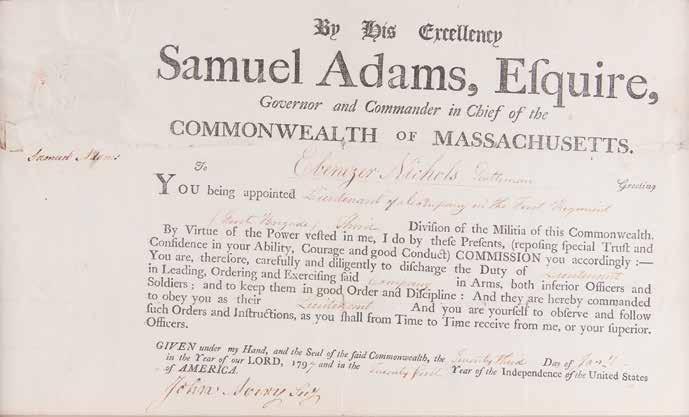 By His Excellency
Samuel Adams, Eſquire,
Governor and Commander in Chief of the
COMMONWEALTH OF MASSACHUSETTS.
Samuel Adams
To Ebenezer Nichols Gentleman Greeting
YOU being appointed Lieutenant of a Company in the First Regiment
First Brigade, Third Diviſion of the Militia of this Commonwealth.
By Virtue of the Power veſted in me, I do by theſe Preſents, (repoſing ſpecial Truſt and
Confidence in your Ability, Courage and good Conduct) COMMISSION you accordingly :—
You are, therefore, carefully and diligently to diſcharge the Duty of Lieutenant
in Leading, Ordering and Exerciſing ſaid Company in Arms, both inferior Officers and
Soldiers ; and to keep them in good Order and Diſcipline : And they are hereby commanded
to obey you as their Lieutenant And you are yourſelf to obſerve and follow
ſuch Orders and Inſtructions, as you ſhall from Time to Time receive from me, or your ſuperior.
Officers.
GIVEN under my Hand, and the Seal of the ſaid Commonwealth, the Twenty third Day of Jany
in the Year of our LORD, 1797 and in the Twenty first Year of the Independence of the United States
of AMERICA.
John Avery Secy